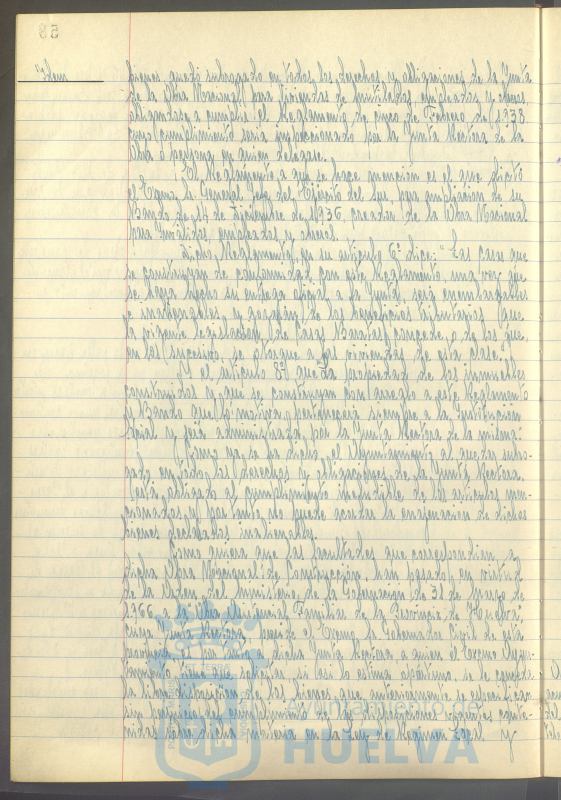 58
Idem
bienes, quedó subrogado en todos los derechos y obligaciones de la Junta
de la Obra Nacional para Viviendas de Inutilizados, empleados y obreros,
obligandose a cumplir el Reglamento de cinco de Febrero de 1.938
cuyo cumplimiento seria inspeccionado por la Junta Rectora de la
Obra o persona en quien delegase.
El Reglamento a que se hace mencion es el que dictó
el Excmo. Sr. General Jefe del Ejército del Sur, para ampliacion de su
Bando de 14 de Diciembre de 1936, creador de la Obra Nacional
para Inválidos, empleados y obreros.
Dicho Reglamento, en su artículo 6º dice: "Las casas que
se construyan de conformidad con este Reglamento, una vez que
se haya hecho su entrega oficial a la Junta, será inembargables
e inalienables, y gozarán de los beneficios tributarios que
la vigente legislacion de Casas Baratas concede, o de los que
en lo sucesivo, se otorgue a las viviendas de esta clase."
Y el artículo 8º que "La propiedad de los inmuebles
construidos y que se construyan con arreglo a este Reglamento
y Bando que lo motiva, pertenecerá siempre a la Institución
Social y será administrada por la Junta Rectora de la misma."
Como ya se ha dicho, el Ayuntamiento al quedar subro-
gado en todos los derechos y obligaciones de la Junta Rectora,
está obligado al cumplimiento ineludible de los artículos men-
cionados, y por tanto no puede acordar la enajenacion de dichos
bienes declarados inalienables.
Como quiera que las facultades que correspondian a
dicha Obra Nacional de Construcción han pasado, en virtud
de la Orden del Ministerio de la Gobernacion de 31 de Marzo de
1966 a la Obra Asistencial Familiar de la Provincia de Huelva,
cuya Junta Rectora, preside el Excmo. Sr. Gobernador Civil de esta
provincia, es por tanto, dicha Junta Rectora, a quien el Excmo. Ayun-
tamiento, tiene que solicitar, si asi lo estima oportuno, se le conceda
la libre disposición de los bienes que anteriormente se especifican
sin perjuicio del cumplimiento de las disposiciones vigentes conte-
nidas sobre dicha materia en la Ley de Regimen Local y
Ayuntamiento de
HUELVA